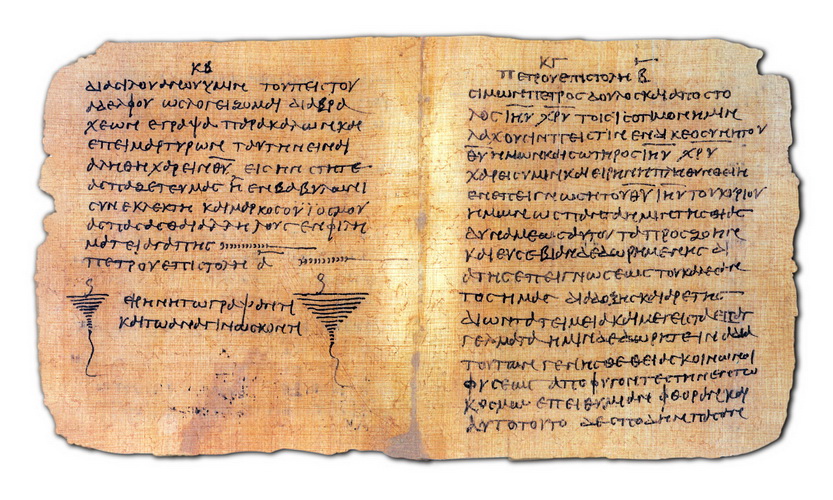 ΚΒ
ΔΙΑ ΣΙΛΟΥΑΝΟΥ ΥΜΙΝ ΤΟΥ ΠΙΣΤΟΥ
ΑΔΕΛΦΟΥ ΩΣ ΛΟΓΕΙΖΟΜΑΙ ΔΙΑ ΒΡΑ
ΧΕΩΝ ΕΓΡΑΨΑ ΠΑΡΑΚΑΛΩΝ ΚΑΙ
ΕΠΕΙΜΑΡΤΥΡΩΝ ΤΑΥΤΗΝ ΕΙΝΑΙ
ΑΛΗΘΗ ΧΑΡΕΙΝ ΘΥ ΕΙΣ ΗΝ ΣΤΗΤΕ
ΑΣΠΑΖΕΤΕ ΥΜΑΣ Η ΕΝ ΒΑΒΥΛΩΝΙ
ΣΥΝΕΚΛΕΚΤΗ ΚΑΙ ΜΑΡΚΟΣ Ο ΥΙΟΣ ΜΟΥ
ΑΣΠΑΣΑΣΘΑΙ ΑΛΛΗΛΟΥΣ ΕΝ ΦΙΛΗ
ΜΑΤΕΙ ΑΓΑΠΗΣ
ΠΕΤΡΟΥ ΕΠΙΣΤΟΛΗ Α
ΕΙΡΗΝΗ ΤΩ ΓΡΑΨΑΝΤΙ
ΚΑΙ ΤΩ ΑΝΑΓΙΝΩΣΚΟΝΤΙ
ΚΓ
ΠΕΤΡΟΥ ΕΠΙΣΤΟΛΗ Β
ΣΙΜΩΝ ΠΕΤΡΟΣ ΔΟΥΛΟΣ ΚΑΙ ΑΠΟΣΤΟ
ΛΟΣ ΙΗΥ ΧΡΥ ΤΟΙΣ ΙΣΟΤΙΜΟΝ ΗΜΙΝ
ΛΑΧΟΥΣΙΝ ΠΕΙΣΤΙΝ ΕΝ ΔΙΚΕΟΣΥΝΗ ΤΟΥ
ΘΥ ΗΜΩΝ ΚΑΙ ΣΩΤΗΡΟΣ ΙΗΥ ΧΡΥ
ΧΑΡΕΙΣ ΥΜΙΝ ΚΑΙ ΕΙΡΗΝΗ ΠΛΗΘΥΝΘΕΙΗ
ΕΝ ΕΠΕΙΓΝΩΣΗ ΤΟΥ ΘΥ ΙΗΥ ΤΟΥ ΚΥΡΙΟΥ
ΗΜΩΝ ΩΣ ΠΑΝΤΑ ΗΜΙΝ ΤΗΣ ΘΙΑΣ
ΔΥΝΑΜΕΩΣ ΑΥΤΟΥ ΤΑ ΠΡΟΣ ΖΩΗΝ
ΚΑΙ ΕΥΣΕΒΙΑΝ ΔΕΔΩΡΗΜΕΝΗΣ ΔΙ
Α ΤΗΣ ΕΠΕΙΓΝΩΣΕΩΣ ΤΟΥ ΚΑΛΕΣΑΝ
ΤΟΣ ΗΜΑΣ ΔΙΑ ΔΟΞΗΣ ΚΑΙ ΑΡΕΤΗΣ
ΔΙ ΩΝ ΤΑ ΤΕΙΜΕΙΑ ΚΑΙ ΜΕΓΕΙΣΤΑ ΕΠΑΓ
ΓΕΛΜΑΤΑ ΗΜΙΝ ΔΕΔΩΡΗΤΕ ΙΝΑ ΔΙΑ
ΤΟΥΤΩΝ ΓΕΝΗΣΘΕ ΘΕΙΑΣ ΚΟΙΝΩΝΟΙ
ΦΥΣΕΩΣ ΑΠΟΦΥΓΟΝΤΕΣ ΤΗΝ ΕΝ ΤΩ
ΚΟΣΜΩ ΕΠΕΙΘΥΜΙΑΝ ΦΘΟΡΑΝ ΚΑΙ
ΑΥΤΟ ΤΟΥΤΟ ΔΕ ΣΠΟΥΔΗΝ ΠΑΣΑΝ